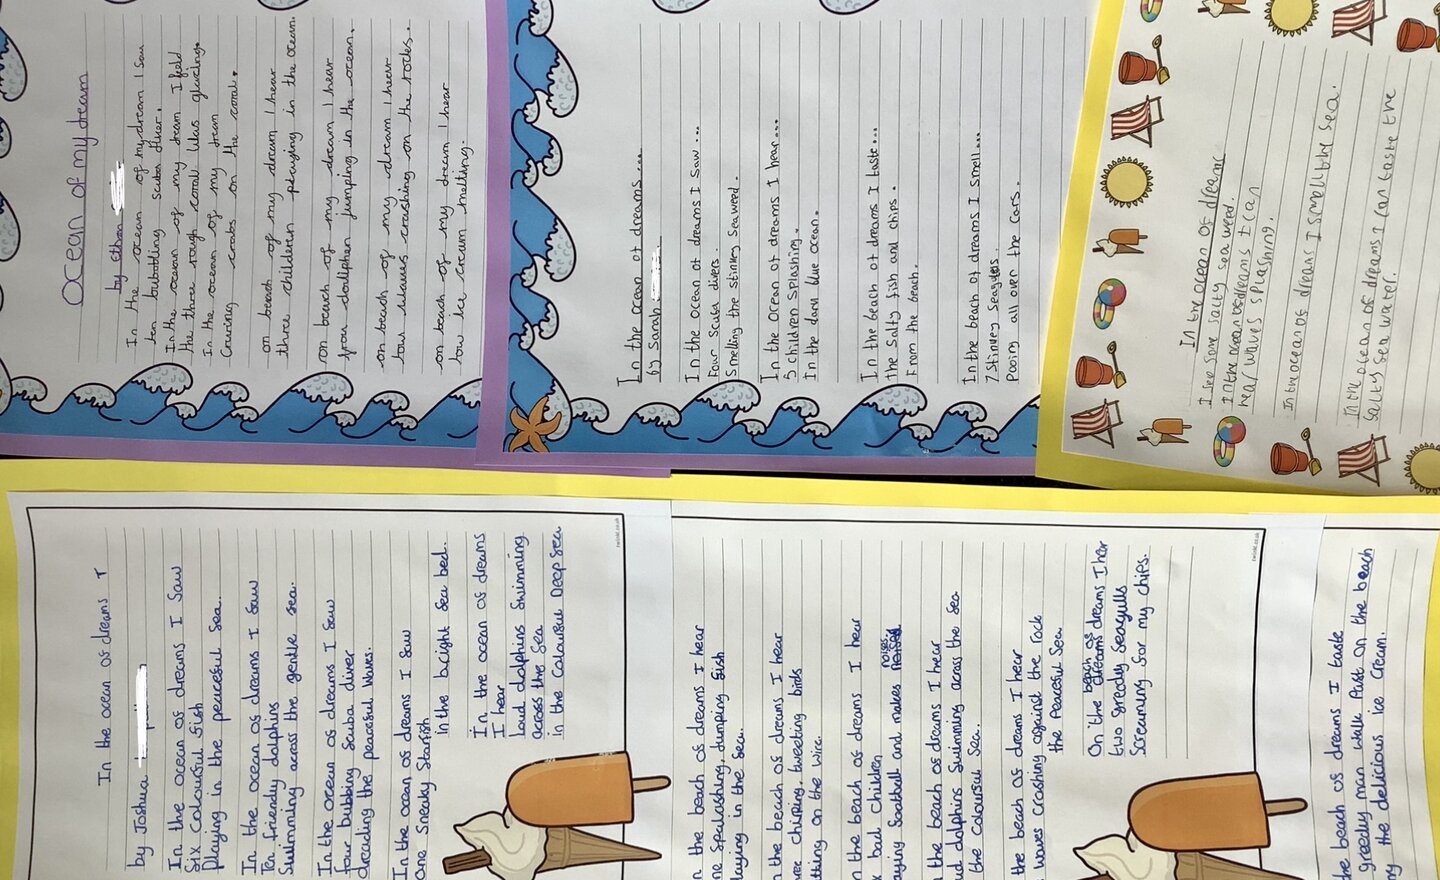 Ocean of my dream
by ethan
In the ocean of my dream I saw
ten bubbling scuba
In the ocean of my tream I field
the three rough coral was glueing.
In the ocean of my tream
crabs on the coral.
on beach of my dream I hear
three children playing in the ocean.
on beach of my dream I hear
four dollphen jumping in the ocean.
on beach of my dream I hear
waves crashing on the rocks.
on beach of my dream I hear
ice cream melting.
In the ocean of dreams...
by Sarah
In the ocean of dreams I saw...
Four scuba divers.
Smelling the stinkey seaweed.
In the ocean of dreams I hear...
5 children splashing.
In the dark blue ocean.
In the beach of dreams I taste...
the salty fish and chips.
From the beach.
In the beach of dreams I smell...
7 stinkey
Pooing all over the cars.
In the ocean of dreams
I see some salty sea weed.
In the ocean of dreams I can
hear waves splashing.
In the ocean of dreams I smell the sea.
In the ocean of dreams I can taste the
salty sea water.
In the ocean of dreams
by Joshua
In the ocean of dreams I saw
Six colourful fish
Playing in the peaceful sea.
In the ocean of dreams I saw
Ten friendly dolphins
Swimming across the gentle sea.
In the ocean of dreams I saw
four bubbing scuba diver
the peaceful waves.
In the ocean of dreams I saw
One sneaky starfish
in the bright sea bed.
In the ocean of dreams
I hear
Loud dolphins swimming
across the sea
in the colourful Deep sea.
twinkl.co.uk
the beach of dreams I hear
jumping fish
in the sea.
the beach of dreams I hear
chirping, tweeting birds
on the wire.
the beach of dreams I hear
bad children
football and makes noises
the beach of dreams I hear
dolphins swimming across the sea
the colourful sea.
the beach of dreams I hear
waves crashing against the rock
the peaceful sea.
On the beach of dreams I hear
two greedy seagulls
screaming for my chips.
twinkl.co.uk
the beach of dreams I taste
greedy man walk past on the beach
the delicious ice cream.